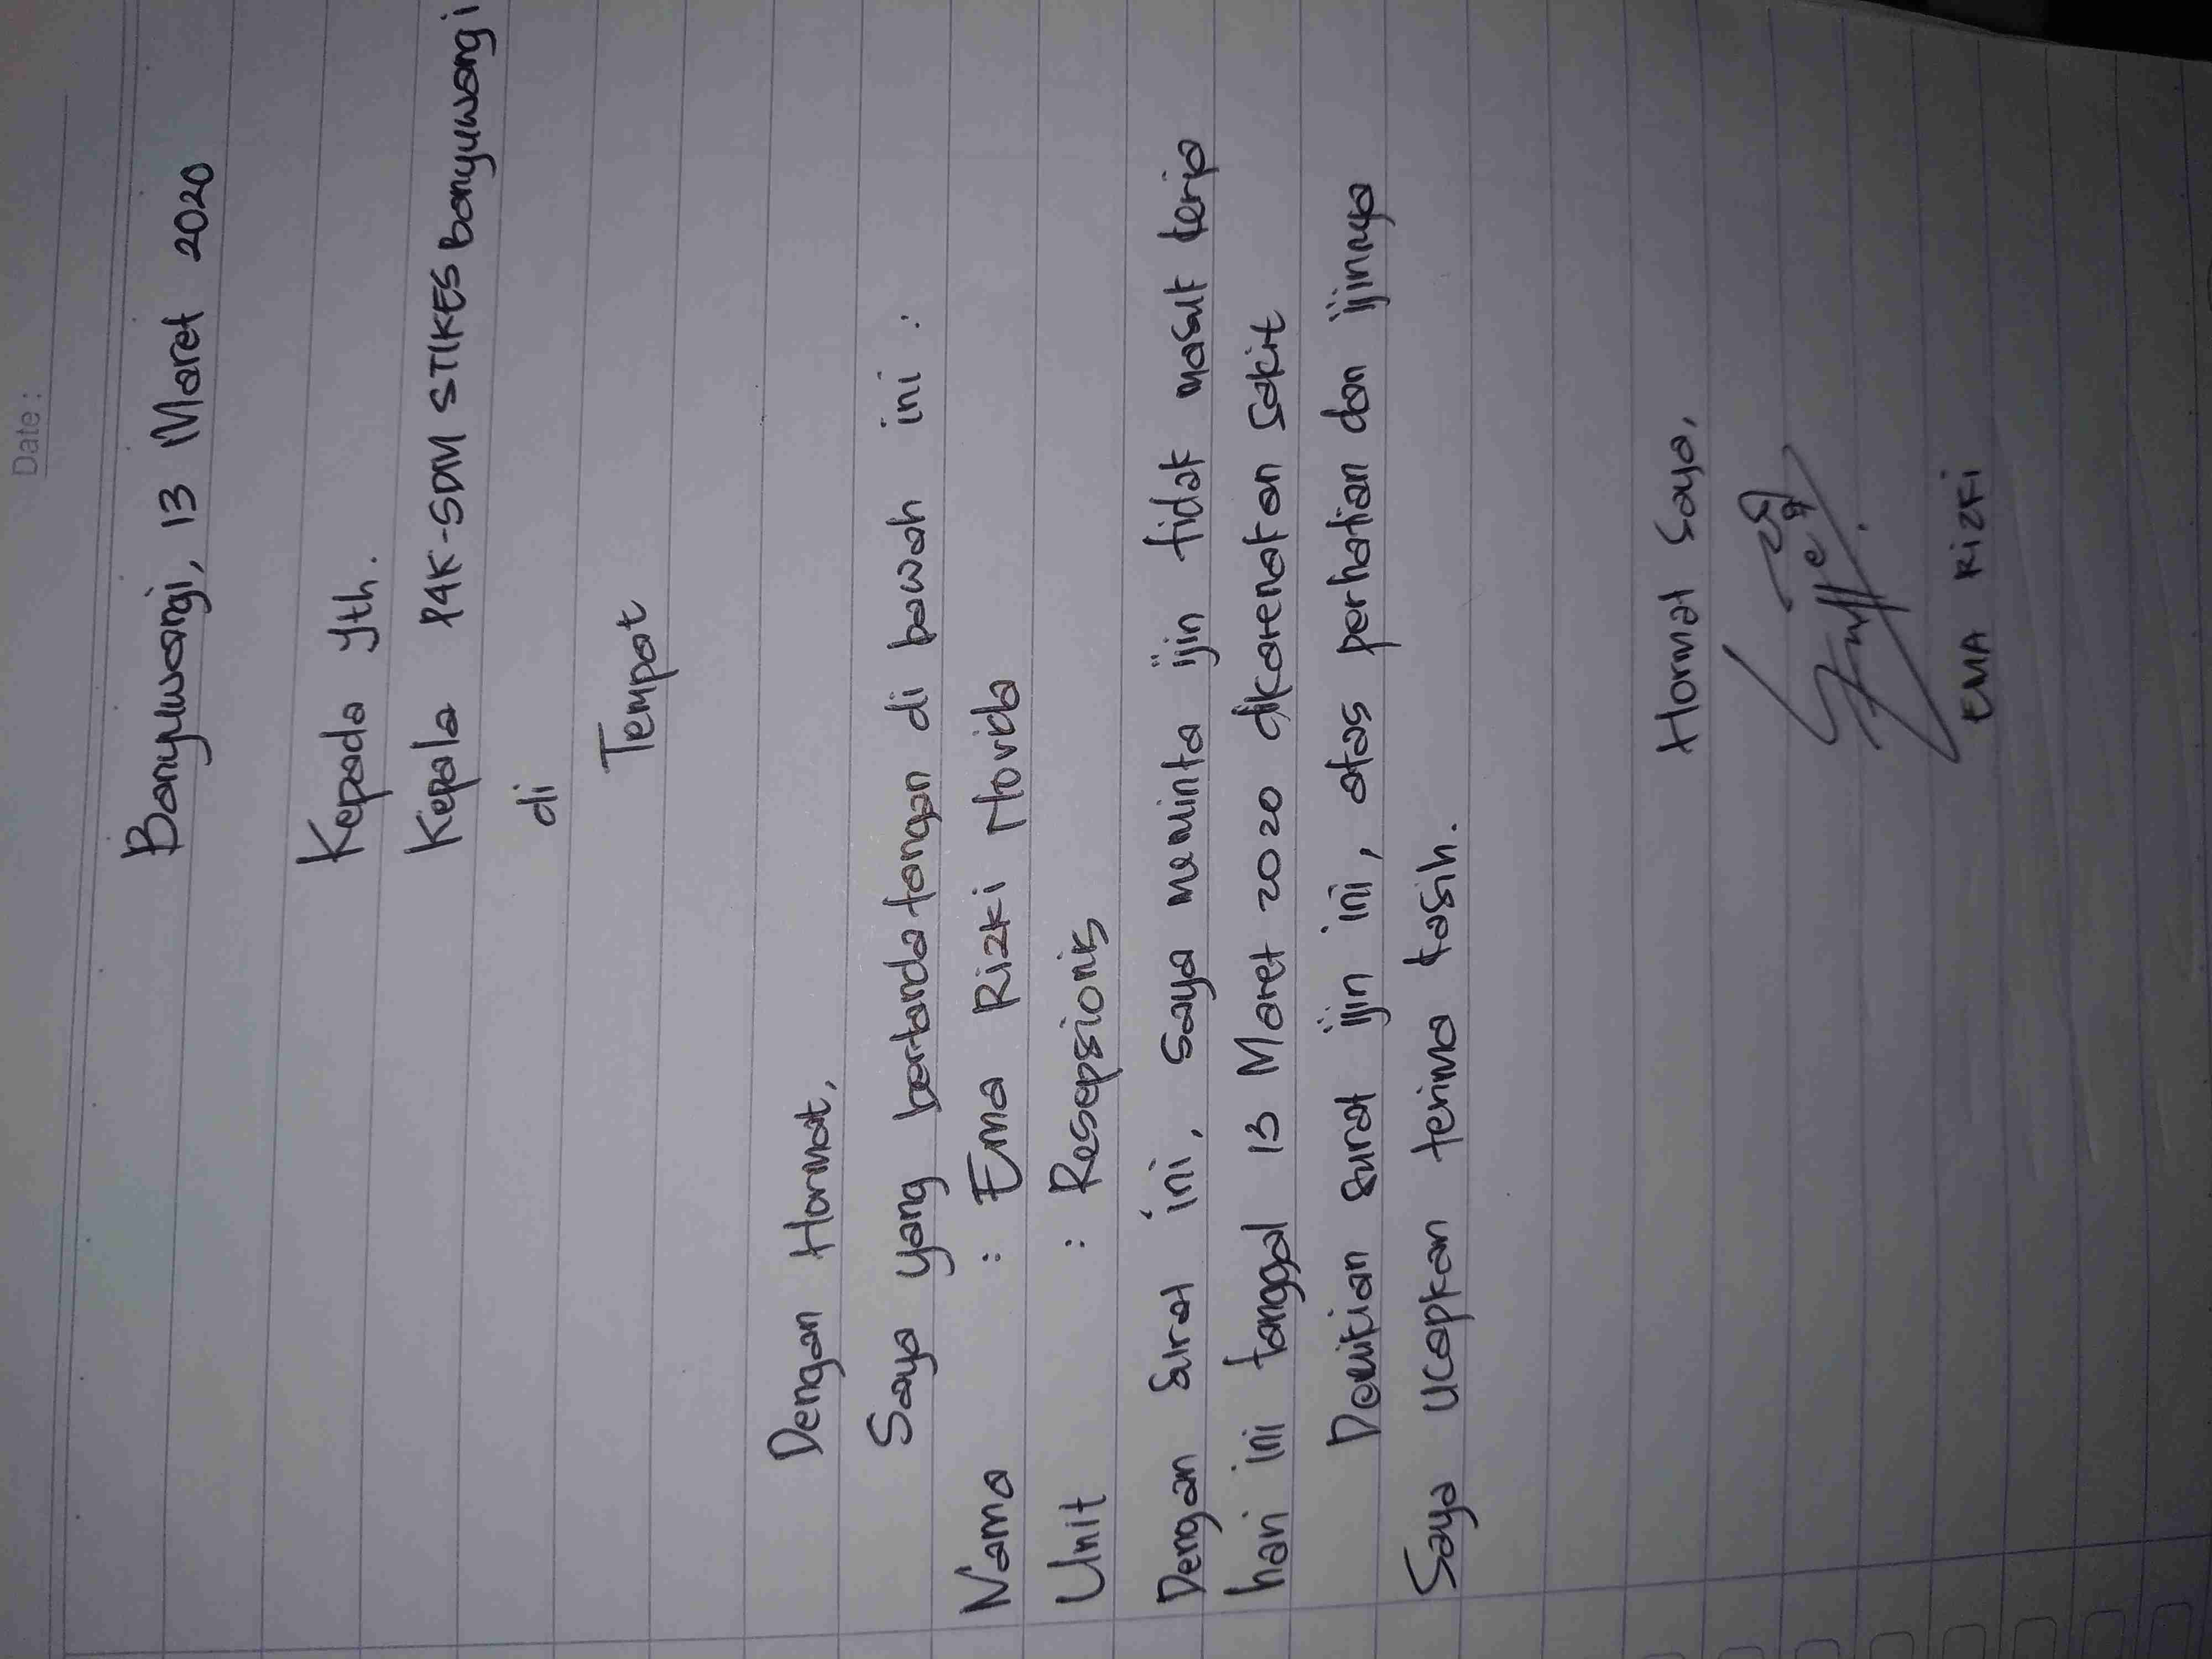 Date :
Banyuwangi, 13 Maret 2020
Kepada Yth.
Kepala P4K-SDM STIKES Banyuwangi
di
Tempat
Dengan Hormat,
Saya yang bertanda tangan di bawah ini :
Nama : Ema Rizki Novida
Unit : Resepsionis
Dengan surat ini, saya meminta ijin tidak masuk kerja
hari ini tanggal 13 Maret 2020 dikarenakan sakit
Demikian surat ijin ini, atas perhatian dan ijinnya
Saya ucapkan terima kasih.
Hormat Saya,
EMA RiZKi